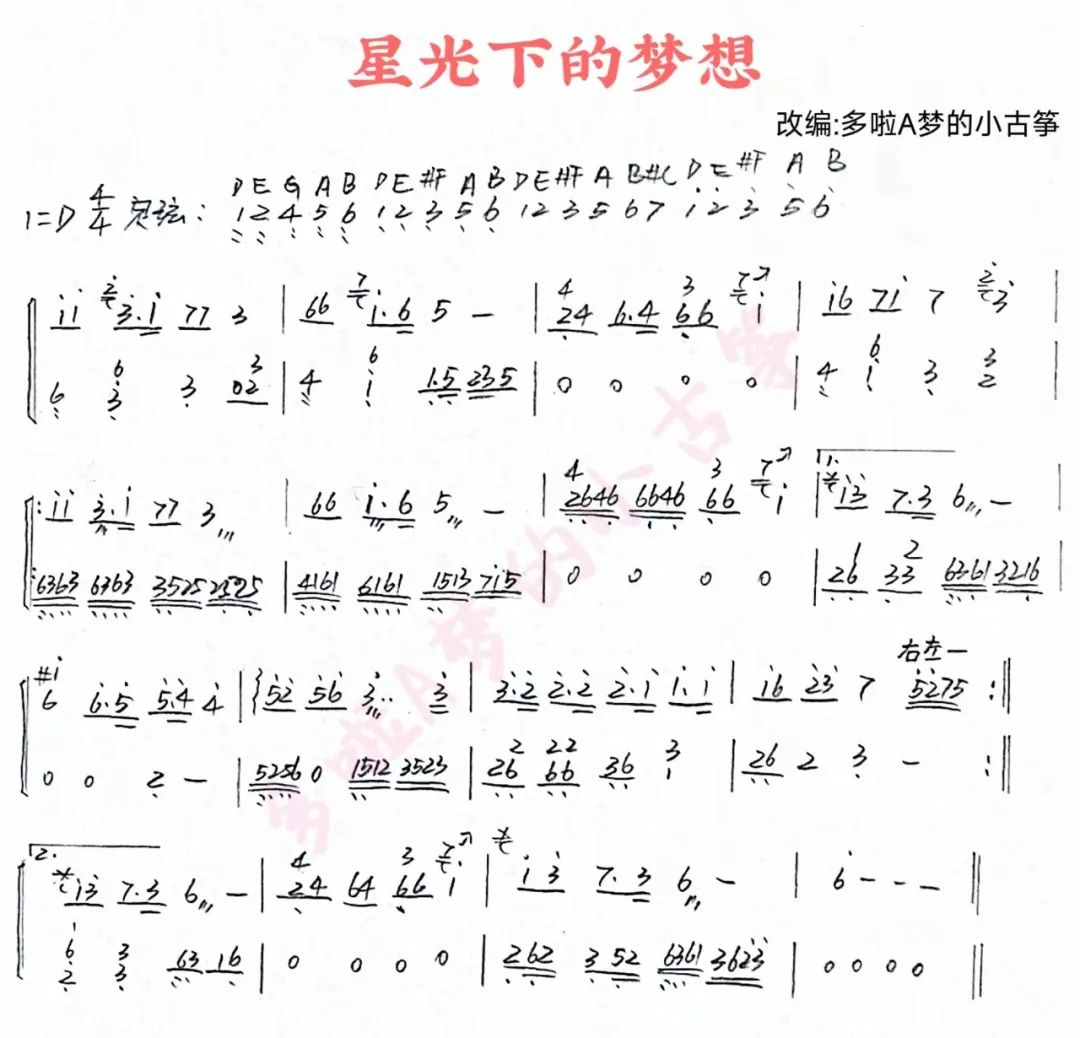 星光下的梦想
改编:多啦A梦的小古筝
D E G A B D E #F A B D E #F A B #C D E #F A B
1=D 4/4 定弦: 1 2 4 5 6 1 2 3 5 6 1 2 3 5 6 7 1 2 3 5 6
11 3·1 77 3 | 66 1·6 5 - | 24 6·4 66 1 | 16 71 7 3 |
6 3 3 02 | 4 1 1·5 235 | 0 0 0 0 | 4 1 3 2 |
11 3·1 77 3 | 66 1·6 5 - | 2646 6646 66 1 | 1. 13 7·3 6 - |
6363 6363 3525 2525 | 4161 6161 1513 715 | 0 0 0 0 | 26 33 6361 3216 |
右左一
#1
6 6·5 5·4 4 | 52 56 3·· 3 | 3·2 2·2 2·1 1·1 | 16 23 7 5275 :||
0 0 2 - | 5256 0 1512 3523 | 26 66 36 1 | 26 2 3 - :||
2. 13 7·3 6 - | 24 64 66 1 | 13 7·3 6 - | 6 - - - ||
6 3
2 3 63 16 | 0 0 0 0 | 262 3 52 6361 3623 | 0 0 0 0 ||
多啦A梦的小古筝